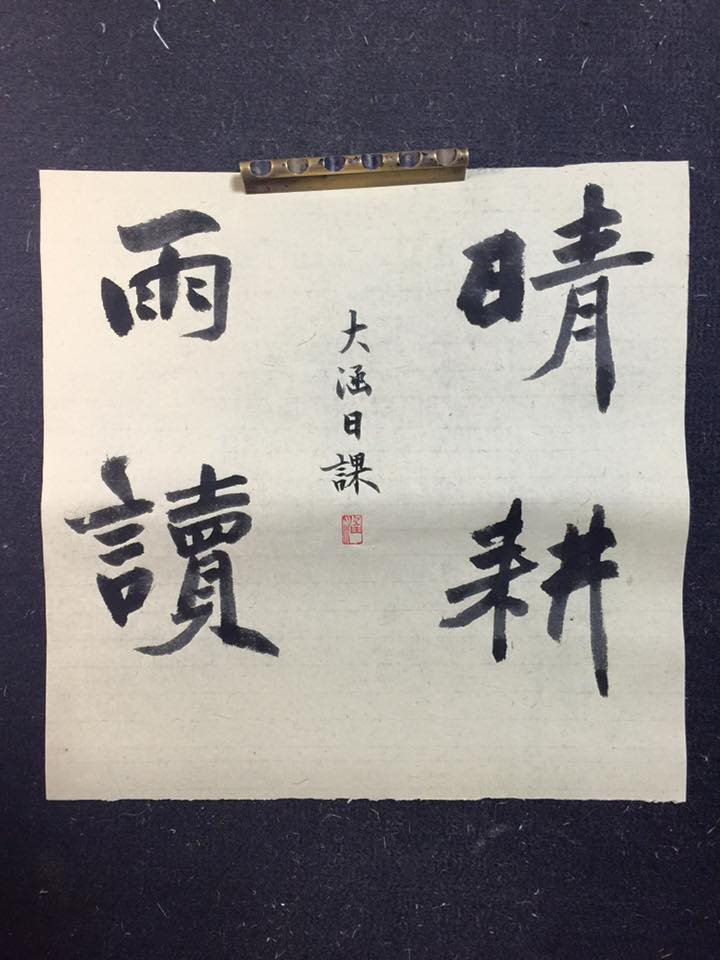 晴耕
雨讀
大涵日課